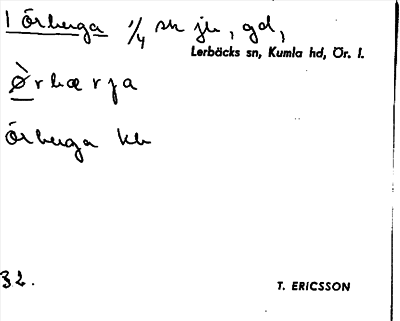 1 Örberga 1/4 sk jb, gd,
Lerbäcks sn, Kumla hd, Ör. l.
Ø̀rbærja
Örberga kb
32.
T. ERICSSON